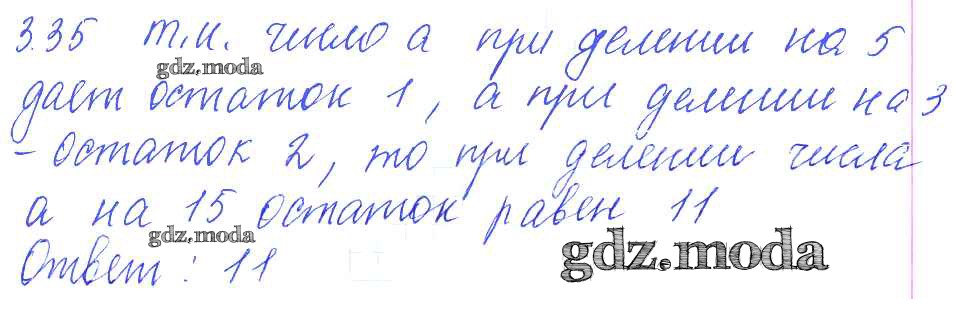 3.35 т.к. число a при делении на 5
gdz.moda
дает остаток 1, а при делении на 3
- остаток 2, то при делении числа
a на 15 остаток равен 11
gdz.moda
Ответ: 11
gdz.moda